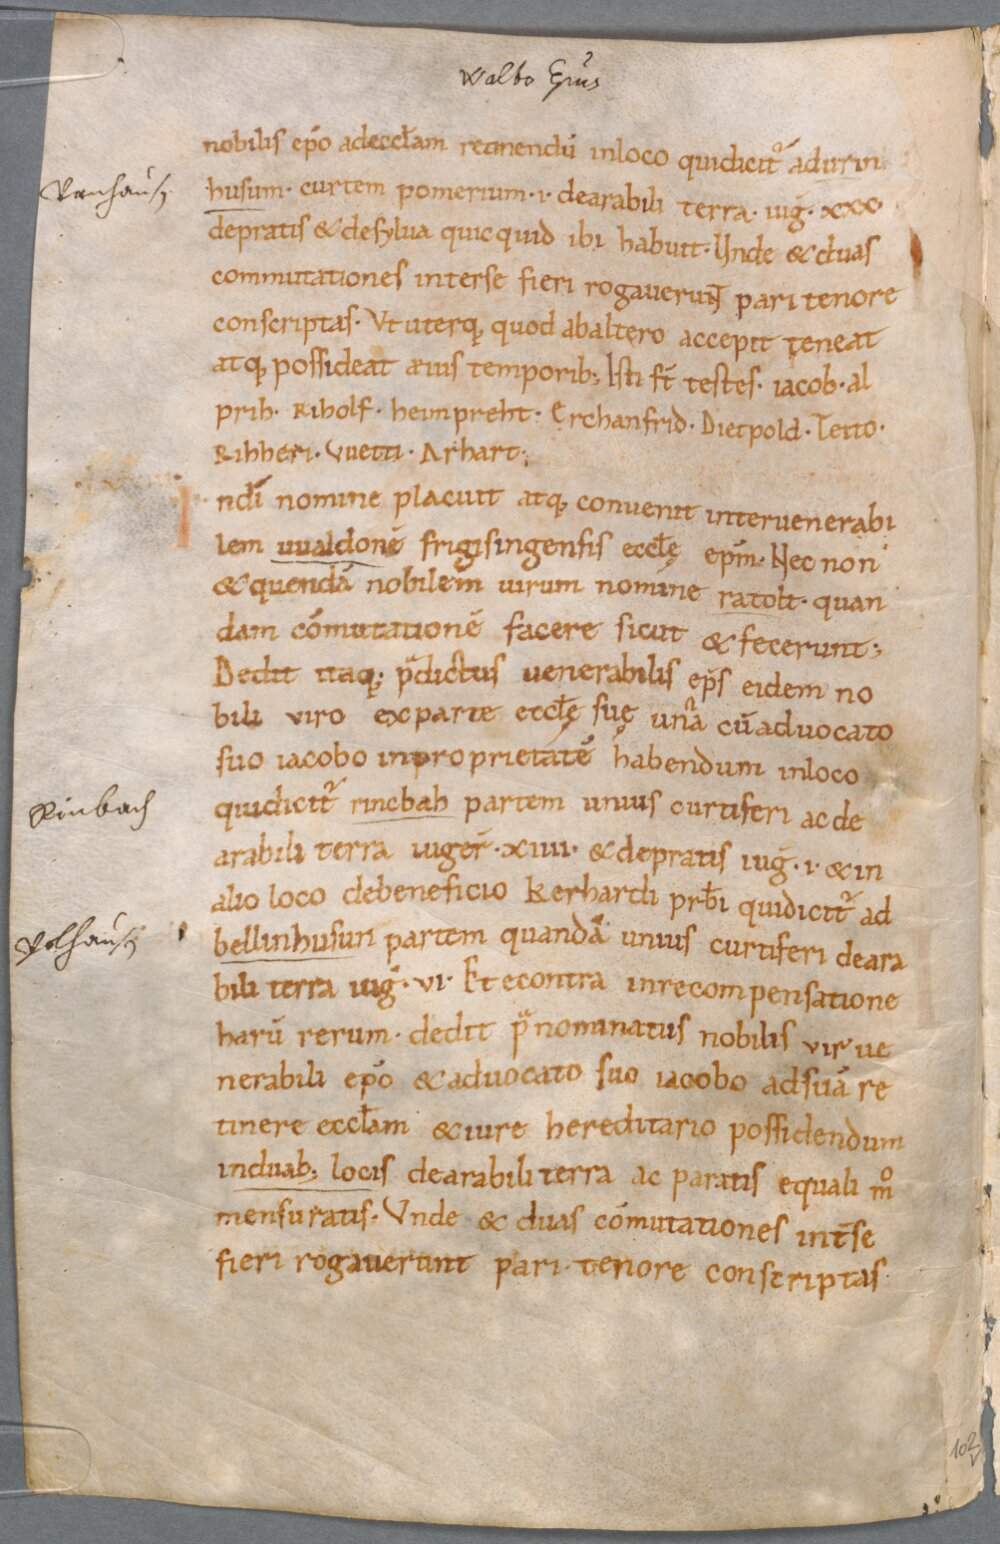 Waldo Ep̄us
nobilis ep̄o adecclam̄ retinendū inloco quidicit᷒ adurin
Urnhausz
husum · curtem pomerium · i · dearabili terra · iug̅ · xxx ·
depratis & desylua quicquid ibi habuit · Unde & duas
commutationes interse fieri rogauerunt̄ pari tenore
conscriptas · Ut uterq; quod abaltero accepit teneat
atq; possideat ęuis temporib; Isti st̄ testes · iacob · al
prih · Riholf · heimpreht · Erchanfrid · Dietpold · Tetto ·
Rihheri · Vuetti · Arhart ;
I ndī nomine placuit atq; conuenit interuenerabi
lem uualdonē frigisingensis eccłę ep̄m · Nec non
& quendā nobilem uirum nomine ratolt · quan
dam cōmutationē facere sicut & fecerunt ;
Dedit itaq; p̄dictus uenerabilis ep̄s eidem no
bili viro exparte eccłę suę unā cū aduocato
suo iacobo inproprietatē habendum inloco
Rinbach
quidicit᷒ rincbah partem unius curtiferi acde
arabili terra iuger̄ · xiiii · & depratis iug̅ · i · & in
alio loco debeneficio kerhardi prb̄i quidicit᷒ ad
Pelhausz
bellinhusun partem quandā unius curtiferi deara
bili terra iug̅ · vi · Et econtra inrecompensatione
harū rerum · dedit p̄nominatus nobilis vir ue
nerabili ep̄o & aduocato suo iacobo adsuā re
tinere eccłam & iure hereditario possidendum
induab; locis dearabili terra ac paratis equali mͦ
mensuratis · Unde & duas cōmutationes int̄se
fieri rogauerunt pari tenore conscriptas
102v